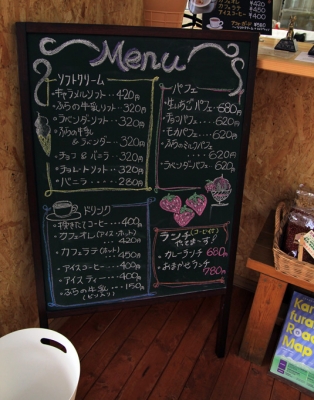 Menu
ソフトクリーム
・キャラメルソフト‥420円
・ふらの牛乳ソフト‥320円
・ラベンダーソフト‥320円
・ふらの牛乳
&ラベンダー‥320円
・チョコ & バニラ‥320円
・チョコレートソフト‥320円
・バニラ‥‥280円
パフェ
・生いちごパフェ‥680円
・チョコパフェ‥‥620円
・モカパフェ‥‥620円
・ふらのミルクパフェ
‥‥620円
・ラベンダーパフェ 620円
ドリンク
・挽きたてコーヒー‥400円
・カフェオレ(アイス・ホット)
‥‥420円
・カフェラテ(ホット)
‥‥450円
・アイスコーヒー‥‥400円
・アイスティー‥‥400円
・ふらの牛乳‥‥150円
(ビン入り)
ランチ(コーヒー付)
やってまーす!
・カレーランチ 680円
・おまかせランチ
780円
カフェオレ ¥420
カフェラテ ¥450
アイスコーヒー ¥400
Road
Map